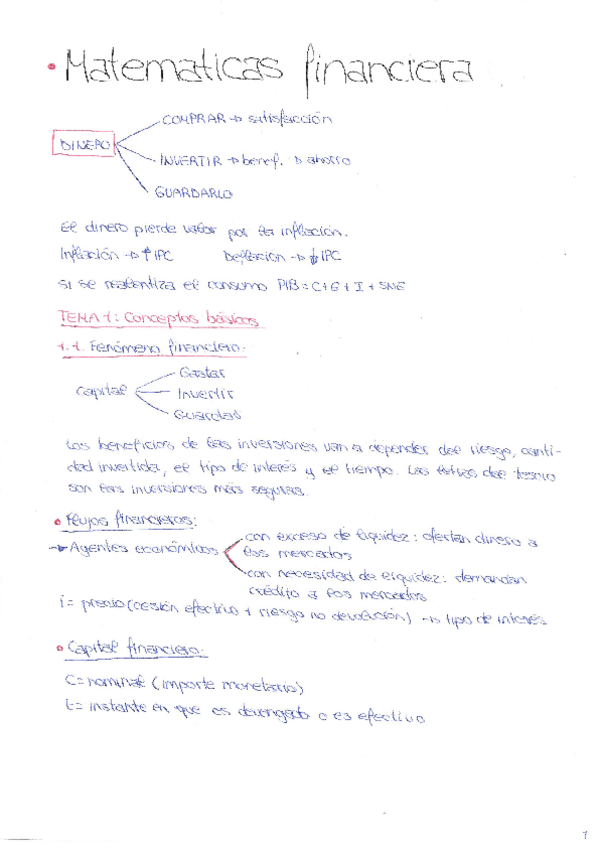 • Matematicas financiera
COMPRAR → satisfacción
DINERO
INVERTIR → benef. → ahorro
GUARDARLO
El dinero pierde valor por la inflación.
Inflación → ↑ IPC Deflación → ↓ IPC
Si se ralentiza el consumo PIB = C + G + I + SNE
TEMA 1: Conceptos básicos
1.1. Fenómeno financiero.
Gastar
Capital
Invertir
Guardar
Los beneficios de las inversiones van a depender del riesgo, canti-
dad invertida, el tipo de interés y el tiempo. Las letras del tesoro
son las inversiones más seguras.
• Flujos financieros:
con exceso de liquidez: ofertan dinero a
→ Agentes económicos
los mercados
con necesidad de liquidez: demandan
crédito a los mercados
i = precio (cesión efectivo + riesgo no devolución) → tipo de interés
• Capital financiero.
C = nominal (importe monetario)
t = instante en que es devengado o es efectivo
1